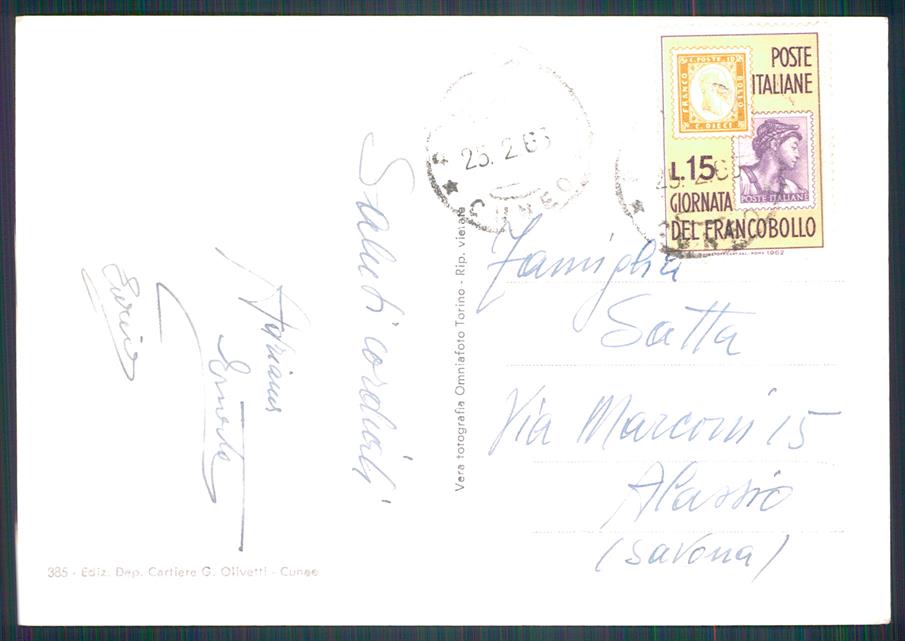 Saluti cordiali
Ernesto
25.2.63
CUNEO
POSTE
ITALIANE
FRANCO
C. POSTE 10
BOLLO
C. DIECI
POSTE ITALIANE
L.15
GIORNATA
DEL FRANCOBOLLO
1962
Famiglia
Satta
Via Marconi 15
Alassio
(Savona)
Vera fotografia Omniafoto Torino - Rip. vietata
385 - Ediz. Dep. Cartiere G. Olivetti - Cuneo